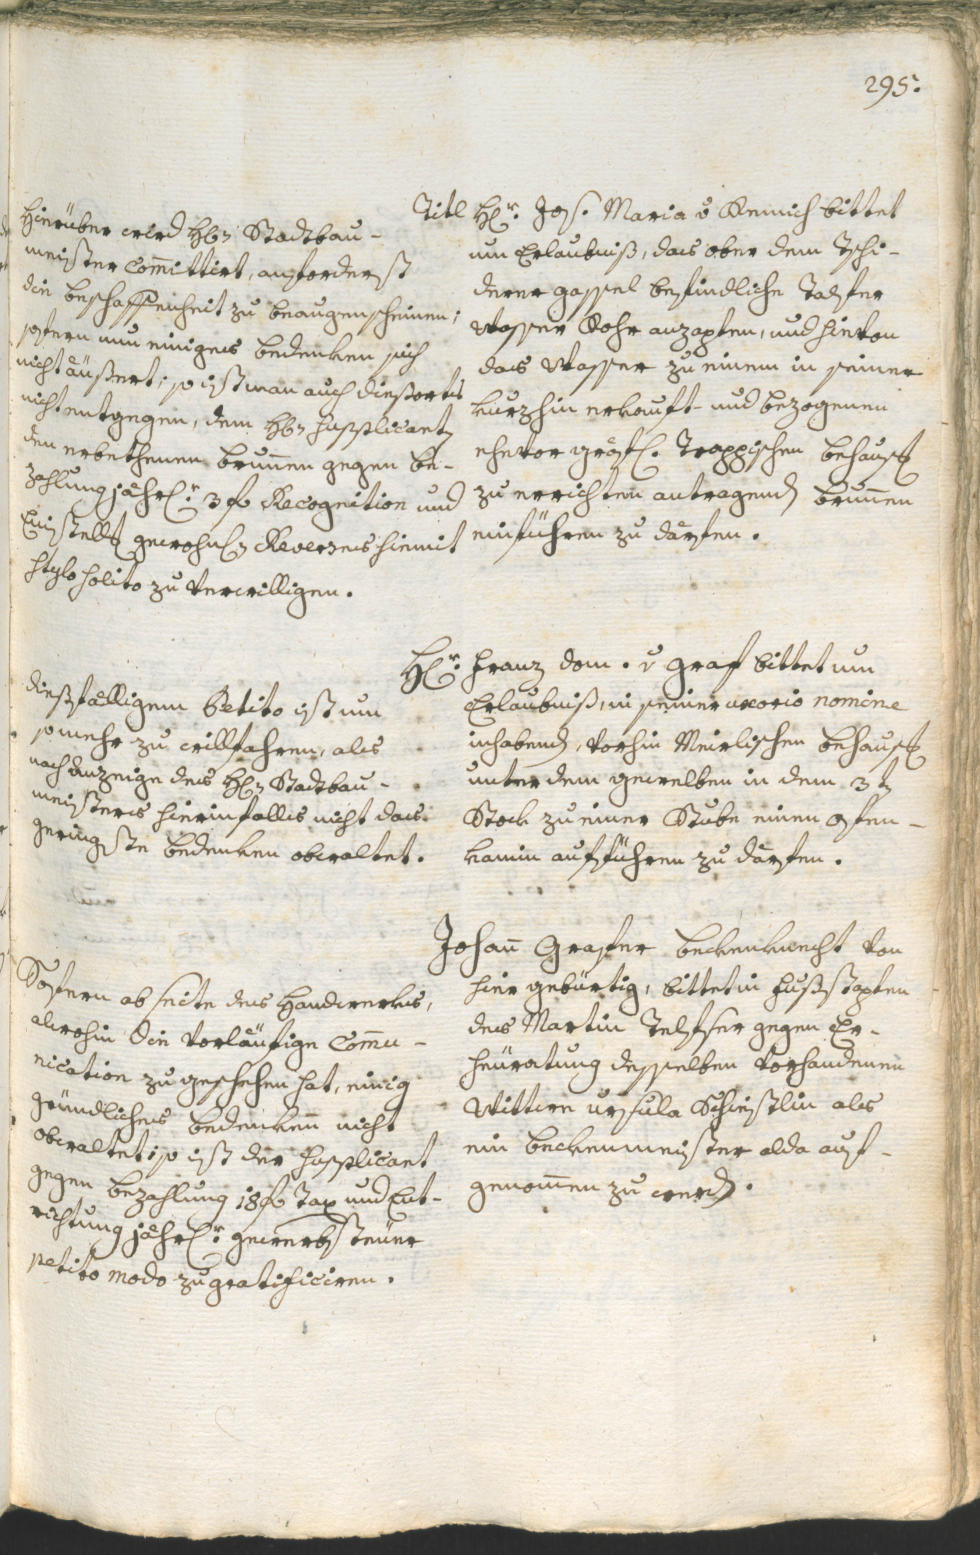 295.
Titl Hr. Jos. Maria v Remich bittet
um Erlaubniß, das ober dem Tschi-
derer gassel befindliche Talfer
Wasser Rohr anzapfen, und hievon
das Wasser zu einem in seiner
kurzhin erkauft- und bezogenen
ehevor gräfl. Trappischen behaus
zu errichten antragend brunnen
einführen zu därfen.
Hierüber wird H Stadtbau-
meister Committirt, anforderist
die beschaffenheit zu beaugenscheinen;
sofern nun einiges bedenken sich
nicht äußert; so ist man auch diesorts
nicht entgegen, dem H Supplicant
den erbethenen brunnen gegen be-
zahlung jährl. 3 f Recognition und
Einstell gewohnl Reverses hiemit
stylo solito zu verwilligen.
Hr. Franz Dom. v Graf bittet um
Erlaubniß, in seiner uxorio nomine
inhabend, vorhin Meirlischen behaus
unter dem gewelben in dem 3t
Stock zu einer Stube einen ofen-
kamin aufführen zu därfen.
dießfälligem Petito ist um
so mehr zu willfahren, als
nach anzeige des H Stadtbau-
meisters hierinfalls nicht das
geringste bedenken obwaltet.
Johann Grafer beckenknecht von
hier gebürtig, bittet in fußstapfen
des Martin Telfser gegen Er-
heuratung desselben vorhandenen
Wittwe Ursula Schiestlin als
ein beckenmeister alda auf-
genommen zu werd.
Sofern ab seite des Handwerks,
alwohin die vorläufige Commu-
nication zu geschehen hat, einig
gründliches bedenken nicht
obwaltet; so ist der Supplicant
gegen bezahlung 18 f Tax und Ent-
richtung jährl. gewerbsteuer
petito modo zu gratificiren.